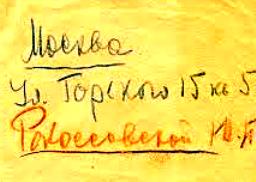 Москва
Ул. Горского 15 кв 5
Рокоссовской Ю.П